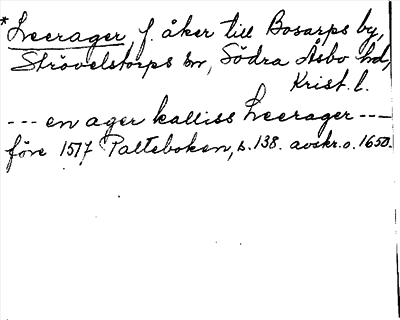 *Leerager, f. åker till Bosarps by,
Strövelstorps sn, Södra Åsbo hd,
Krist. l.
--- en ager kalliss Leerager ---
före 1517 Palteboken, s. 138. avskr. o. 1650.